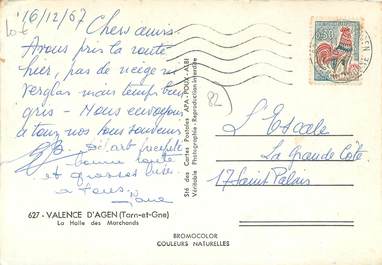 16/12/67
Chers amis
Avons pris la route
hier, pas de neige ni
verglas mais temps bien
gris - Nous envoyons
à tous nos bons souvenirs
bonne santé
et grosses bises
à tous
627 - VALENCE D'AGEN (Tarn-et-Gne)
La Halle des Marchands
Sté des Cartes Postales APA-POUX - ALBI
Véritable Photographie - Reproduction interdite
BROMOCOLOR
COULEURS NATURELLES
0,30
(82)
L'Escale
La Grande Côte
17 Saint Palais